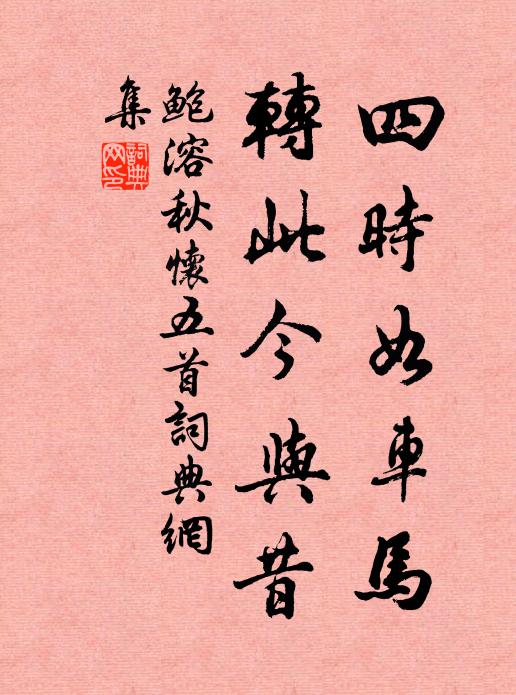 四時如車馬
轉此今與昔
鮑溶秋懷五首詞典網
集
詞典網印